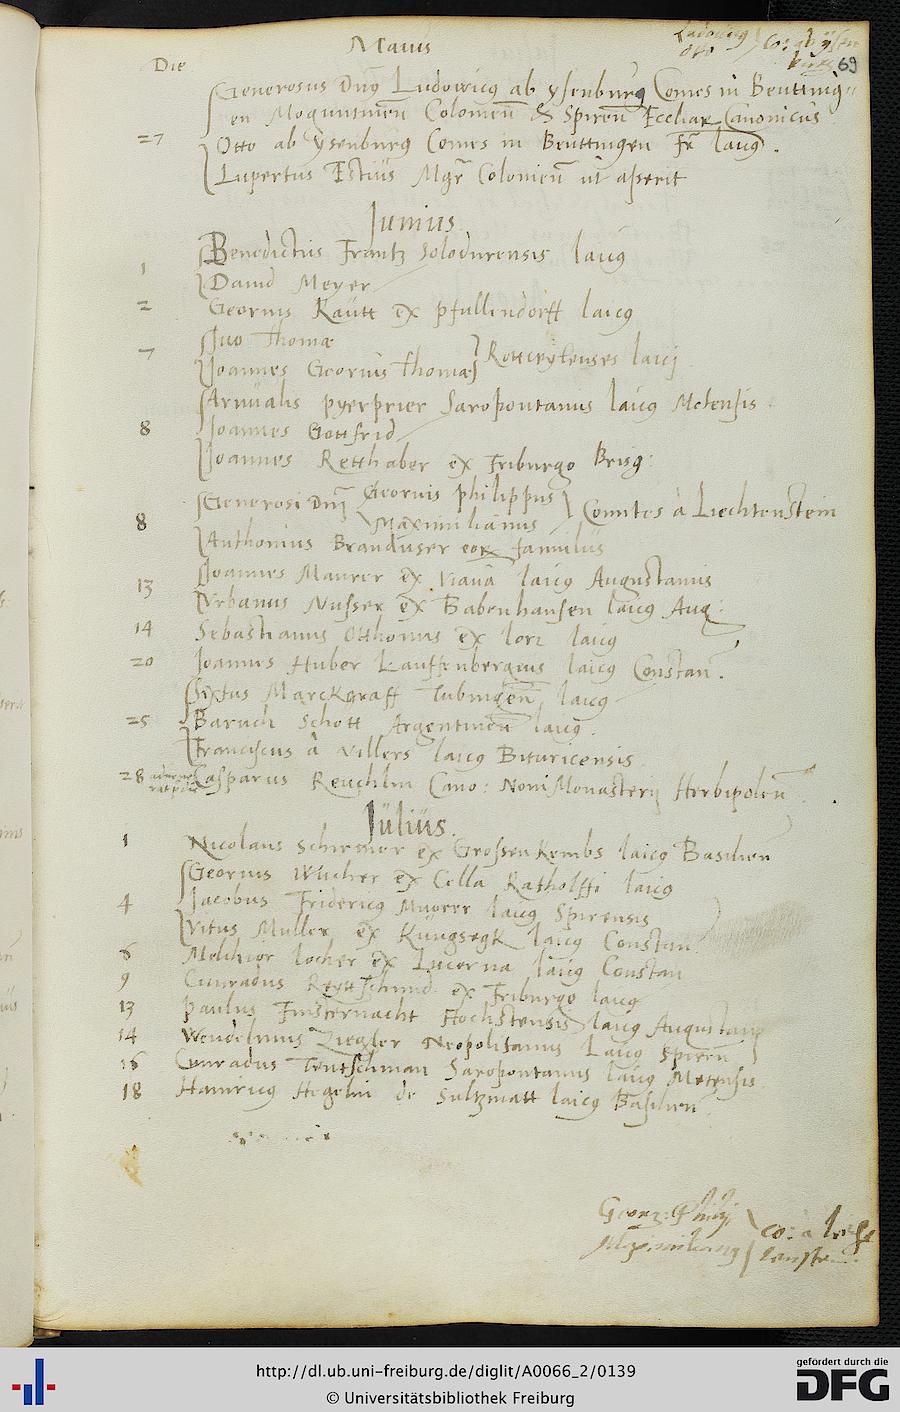 Maius
Ludovicus Otto } Co: ab Ysen
69
Die
Generosus Dnς Ludovicς ab ysenburg Comes in Beutting-
en Moguntinen̄ Colonien̄ & Spiren̄ Eccliar Canonicus
27 Otto ab Ysenburg Comes in Beuttingen Fr̄ laicς.
Lupertus Estius Mgr̄ Colonien̄ ut asserit
Junius
Benedictus Frantz Solodurensis laicς
1 Dauid Meyer
2 Georius Raütt ex pfullendorff laicς
Iuo Thomæ
7 Joannes Georius Thomæ } Rottwylenses laicj
Arnualis pyerprier Saropontanus laicς Metensis
8 Joannes Gottfrid
Joannes Retthaber ex Friburgo Brisg:
Generosi Dnj Georius philippus
8 Maximilianus } Comites à Liechtenstein
Anthonius Branduser eor famulus
Joannes Maurer ex laicς Augustanus
13 Vrbanus Nusser ex Babenhausen laicς Aug:
14 Sebastianus Otthonis ex laicς
20 Joannes Huber Lauffenbergius laicς Constan̄.
Sixtus Marckgraff Tubingen̄ laicς
25 Baruch Schott Argentinen̄ laicς.
Franciscus à Villers laicς Bituricensis
28 Casparus Reuchlin Cano: Noui Monasterij Herbipolen̄
Julius.
1 Nicolaus Schirmer ex Grossen Kembs laicς Basilien̄
Georius Wucher ex Cella Ratholffi laicς
4 Jacobus Fridericς laicς Spirensis
Vitus Muller ex Küngsegk laicς Constan
6 Melchior Locher ex Lucerna laicς Constan
9 Cunradus ex Friburgo laicς
13 Paulus Finsternacht Hochstensis laicς Augustanς
14 Wendelinus Ziegler Neopolitanus Laicς Spiren̄
16 Cunradus Teutschman Saropontanus laicς Metensis
18 Hainricς Hegelin de Sultzmatt laicς Basilien̄
Georg: Philip.
Maximilianς } co: à leich
tenstein.
http://dl.ub.uni-freiburg.de/diglit/A0066_2/0139
© Universitätsbibliothek Freiburg
gefördert durch die
DFG